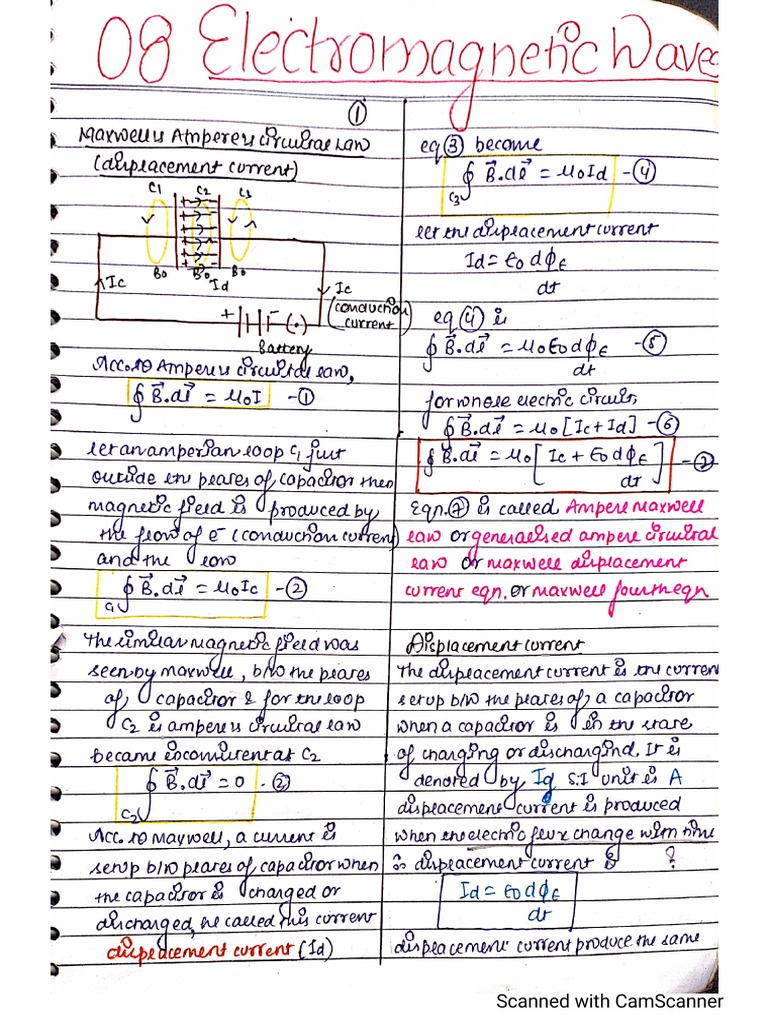 08 Electromagnetic Waves
①
Maxwell's Ampere's circuital law
(displacement current)
C1 C2 C3
B0 B0 B0
Ic Id Ic
(conduction current)
+ - (.)
Battery
Acc. to Ampere's circuital law,
∮ B⃗.dl⃗ = μ0I -①
let an amperian loop C1 just
outside the plates of capacitor then
magnetic field is produced by
the flow of e⁻ (conduction current)
and the law
∮ B⃗.dl⃗ = μ0Ic -②
C1
The similar magnetic field was
seen by maxwell, b/w the plates
of capacitor & for the loop
C2 is ampere's circuital law
became inconsistent at C2
∮ B⃗.dl⃗ = 0 -③
C2
Acc. to maxwell, a current is
setup b/w plates of capacitor when
the capacitor is charged or
discharged, he called this current
displacement current (Id)
eq ③ become
∮ B⃗.dl⃗ = μ0Id -④
C3
let the displacement current
Id = ε0 dϕE
dt
eq ④ is
∮ B⃗.dl⃗ = μ0ε0 dϕE -⑤
dt
for whole electric circuit,
∮ B⃗.dl⃗ = μ0 [Ic+Id] -⑥
∮ B⃗.dl⃗ = μ0 [Ic + ε0 dϕE] -⑦
dt
Eqn. ⑦ is called Ampere Maxwell
law or generalised ampere circuital
law or maxwell displacement
current eqn. or maxwell fourth eqn
Displacement current
The displacement current is the current
setup b/w the plates of a capacitor
when a capacitor is in the state
of charging or dischargind. It is
denoted by Id S.I unit is A
displacement current is produced
when the electric flux change with time
∴ displacement current is ?
Id = ε0 dϕE
dt
displacement current produce the same
Scanned with CamScanner